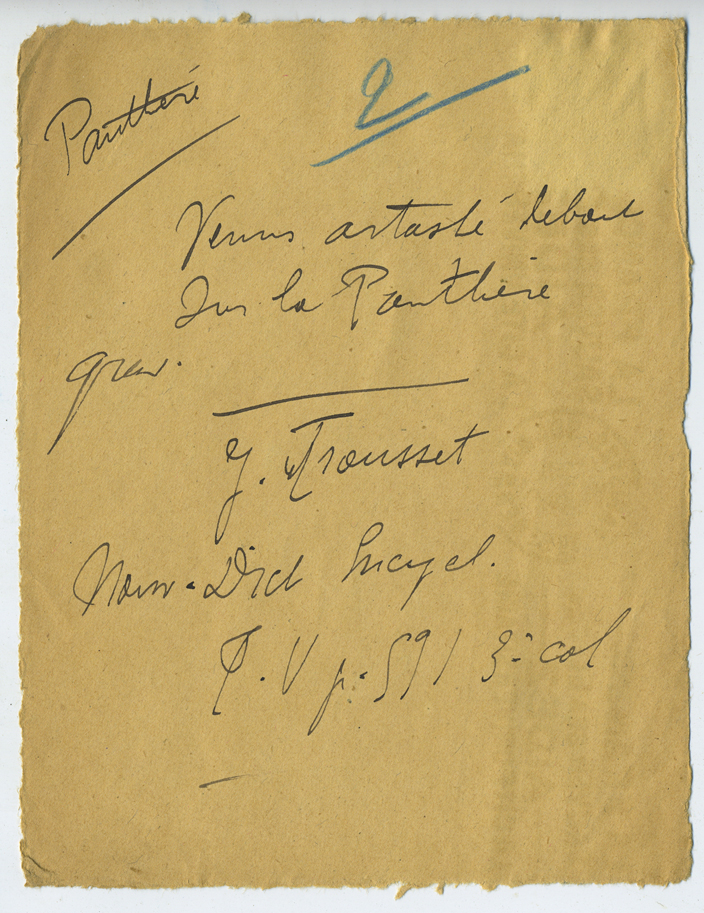 Panthère
2
Venus astarté debout
Sur la Panthère
grav.
J. Trousset
Nouv. Dict Encycl.
T. V p. 591 3e col